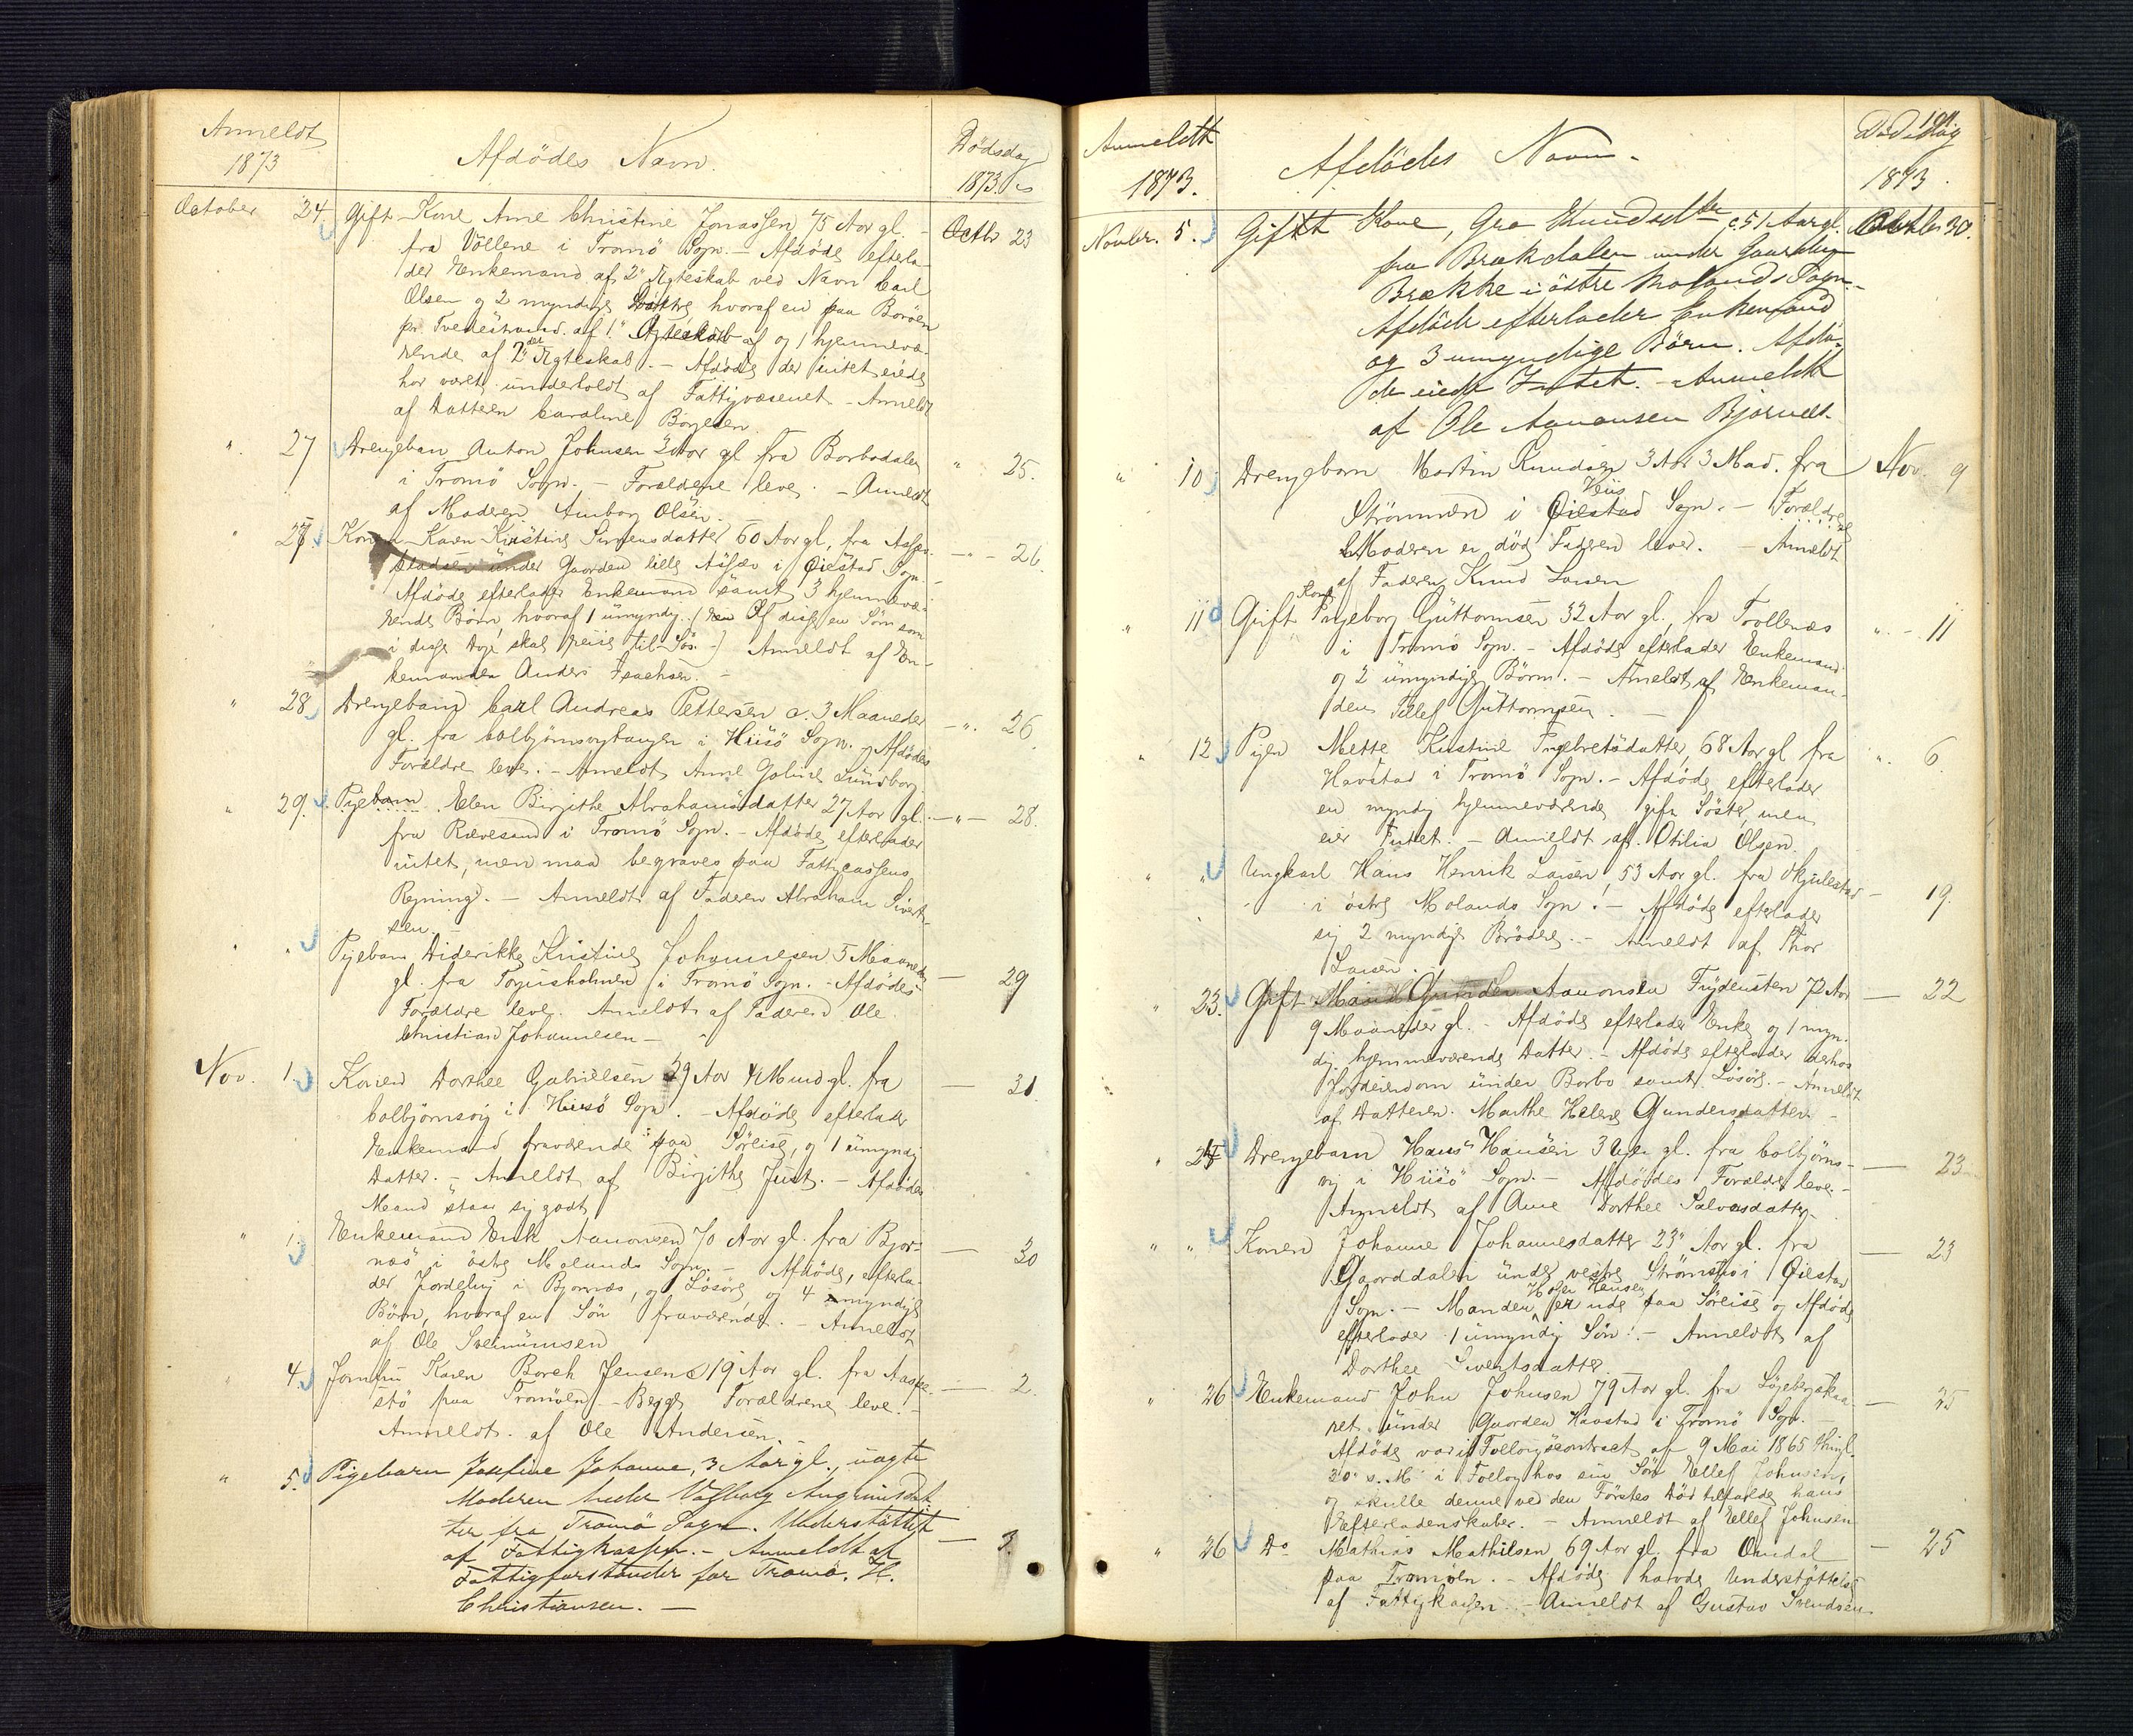 Anmeldt
1873
Afdödes Navn.
Dödsdag
1873.
October 24. Gift Kone Ane Christine Jonassen 75 Aar gl. – Octb 23
fra Völlene i Tromö Sogn. – Afdöde efterla-
der Enkemand af 2' Ægteskab ved Navn Carl
Olsen og 2 myndige hvoraf en paa Boröen
pr. Tvedestrand af 1' Ægteskab af og 1 hjemmevæ-
rende af 2det Ægteskab. – Afdöde der intet eiede
har været underholdt af Fattigvæsenet – Anmeldt
af Datteren Caroline Börgesen.
" 27 Drengebarn Anton Johnsen 2 Aar gl fra Barbodalen " 25.
i Tromö Sogn. – Forældrene leve. – Anmeldt
af Moderen Amborg Olsen.
" 27. Konen Karen Kristine Simensdatter 60 Aar gl, fra – " – 26.
pladsen under Gaarden lille Assæv i Öiestad Sogn.
Afdöde efterlader Enkemand samt 3 hjemmevæ-
rende Börn hvoraf 1 umyndig. (Af disse en Sön som
i disse Dage skal reise til Sös.) Anmeldt af En-
kemanden Anders Isachsen. –
" 28 Drengebarn Carl Andreas Pettersen c. 3 Maaneder – ". 26
gl. fra Colbjörnsvighaugen i Hiisö Sogn. – Afdödes
Forældre leve. – Anmeldt Anne Goline Lundborg.
" 29. Pigebarn Elen Birgithe Abrahamsdatter 27 Aar gl. – " – 28.
fra Rævesand i Tromö Sogn. – Afdöde efterlader
intet, men maa begraves paa Fattigcassens
Regning. – Anmeldt af Faderen Abraham Sivert-
sen. –
" " Pigebarn Diderikke Kristine Johannesen 5 Maaneder – 29
gl. fra Torjusholmen i Tromö Sogn. – Afdödes
Forældre leve. Anmeldt af Faderen Ole
Christian Johannesen –
Nov. 1. Konen Dorthee Gabrielsen 29 Aar 4 Mnd gl. fra – 31.
Colbjörnsvig i Hiisö Sogn. – Afdöde efterlader
Enkemand fraværende paa Söreise, og 1 umyndig
Datter. – Anmeldt af Birgithe Just. – Afdödes
Mand staar sig godt
" 1. Enkemand Erik Aanonsen 70 Aar gl. fra Bjor- – 30
næs i östre Molands Sogn. – Afdöde, efterla-
der Jordeling i Bjornæs, og Lösöre og 4 myndige
Börn, hvoraf en Sön fraværende. – Anmeldt
af Ole
" 4. Jomfru Karen Borch Jensen 19 Aar gl. fra – 2.
stö paa Tromöen – Begge Forældrene leve. –
Anmeldt af Ole Andersen. –
" 5. Pigebarn Josefine Johanne, 3 Aar gl., uægte
Moderen heder Valborg
ter fra Tromö Sogn. Understöttet – 3.
af Fattigkassen. – Anmeldt af
Fattigforstander for Tromö, H.
Christiansen. –
Anmeldt
1873.
Afdödes Navn.
Dödsdag
1873.
Novbr. 5. Gift Kone, Gro Knudsdtr c. 51 Aar gl. Octbr 30.
fra Brækdalen under Gaarden
Brække i östre Molands Sogn. –
Afdöde efterlader Enkemand
og 3 umyndige Börn. Afdö-
de eiede Intet. – Anmeldt
af Ole Aanonsen Bjornæs.
" 10 Drengebarn Martin Knudsen 3 Aar 3 Mad. fra Nov. 9
Hiis
Strömmen i Öiestad Sogn. – Forældre
Moderen er död Faderen lever. – Anmeldt
af Faderen Knud Larsen
Kone
" 11 Gift Ingeborg Guttormsen 32 Aar gl., fra Trollenæs ". – 11
i Tromö Sogn. – Afdöde efterlader Enkemand
og 2 umyndige Börn. – Anmeldt af Enkeman-
den Tellef Guttormsen. –
" 12 Pigen Mette Kristine Ingebretsdatter, 68 Aar gl fra ". 6.
Havstad i Tromö Sogn. – Afdöde efterlader
en myndig hjemmeværende gift Söster, men
eier Intet. – Anmeldt af Otilia Olsen.
" " Ungkarl Hans Henrik Larsen, 53 Aar gl. fra Skjulestad – 19.
i östre Molands Sogn. – Afdöde efterlader
sig 2 myndige Brödre. – Anmeldt af Thor
Larsen.
" 23. Gift Mand Gunder Aanonsen Frydensten 72 Aar – 22
9 Maaneder gl. – Afdöde efterlader Enke og 1 myn-
dig hjemmeværende Datter. – Afdöde efterlader derhos
Jordeiendom under Barbo samt Lösöre. – Anmeldt
af Datteren Marthe Helene Gundersdatter –
" 24 Drengebarn Hans Hansen 3 Uger gl. fra Colbjörns- – 23
vig i Hiisö Sogn. – Afdödes Forældre leve. –
Anmeldt af Ane Dorthee Salvesdatter. –
" " Konen Johanne Johannesdatter 23 Aar gl. fra – 23
Gaarddalen under vestre Strömsbo i Öiestad
Sogn. – Manden er ude paa Söreise og Afdöde
efterlader 1 umyndig Sön. – Anmeldt af
Dorthee Sivertsdatter.
" 26 Enkemand John Johnsen 79 Aar gl. fra – 25
ret under Gaarden Havstad i Tromö Sogn.
Afdöde var if Follougscontract af 9 Mai 1865 thingl.
30' s. M. i Follog hos sin Sön Tellef Johnsen,
og skulle denne ved den Förstes Död tilfalde hans
Efterladenskaber. – Anmeldt af Tellef Johnsen
" 26 Do Mathias Mathilsen 69 Aar gl. fra Omdal – 25
paa Tromöen. – Afdöde havde Understöttelse
af Fattigkassen. – Anmeldt af Gustav Svendsen